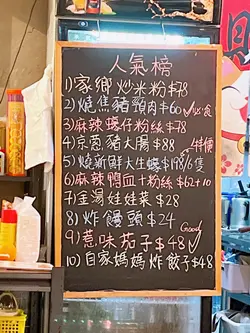 人氣榜
1)家鄉炒米粉$78
2)燒焦豬頸肉$60 必食
3)麻辣蠔仔粉絲$78
4)京蔥豬大腸$88 特價
5)燒新鮮大生蠔$198/6隻
6)麻辣鴨血+粉絲$62+10
7)金湯娃娃菜$28
8)炸饅頭$24
9)薏味茄子$48 Good
10)自家媽媽炸餃子$48